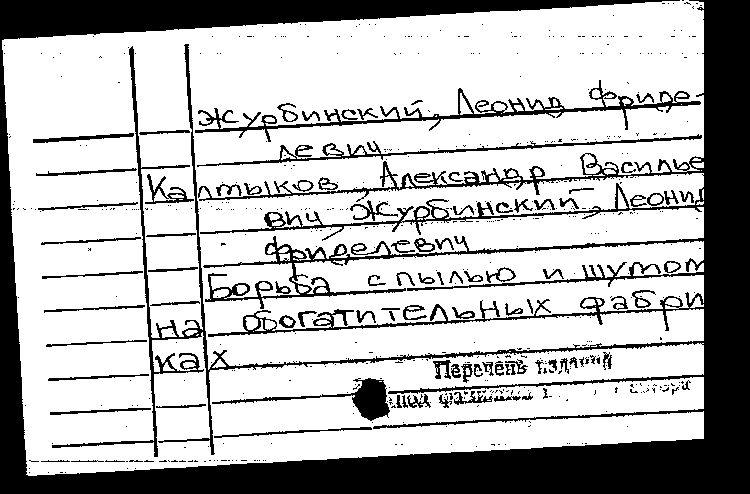 Журбинский, Леонид Фриде-
левич
Калтыков, Александр Василье
вич, Журбинский, Леонид
Фриделевич
Борьба с пылью и шумом
на обогатительных фабри
ках
Перечень изданий
под фамилией